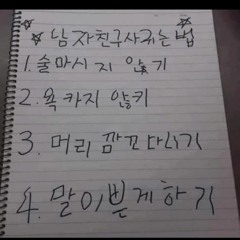 ☆남자친구사귀는법☆
1.술마시지 않기
2.욕카지 않키
3.머리 깜꼬다니기
4.말이쁜게하기